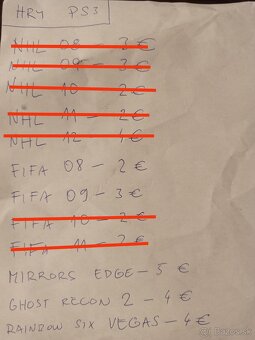 HRY PS3
NHL 08 - 3 €
NHL 09 - 3 €
NHL 10 - 2 €
NHL 11 - 2 €
NHL 12 - 4 €
FIFA 08 - 2 €
FIFA 09 - 3 €
FIFA 10 - 2 €
FIFA 11 - 2 €
MIRRORS EDGE - 5 €
GHOST RECON 2 - 4 €
RAINBOW SIX VEGAS - 4 €
Bazos.sk